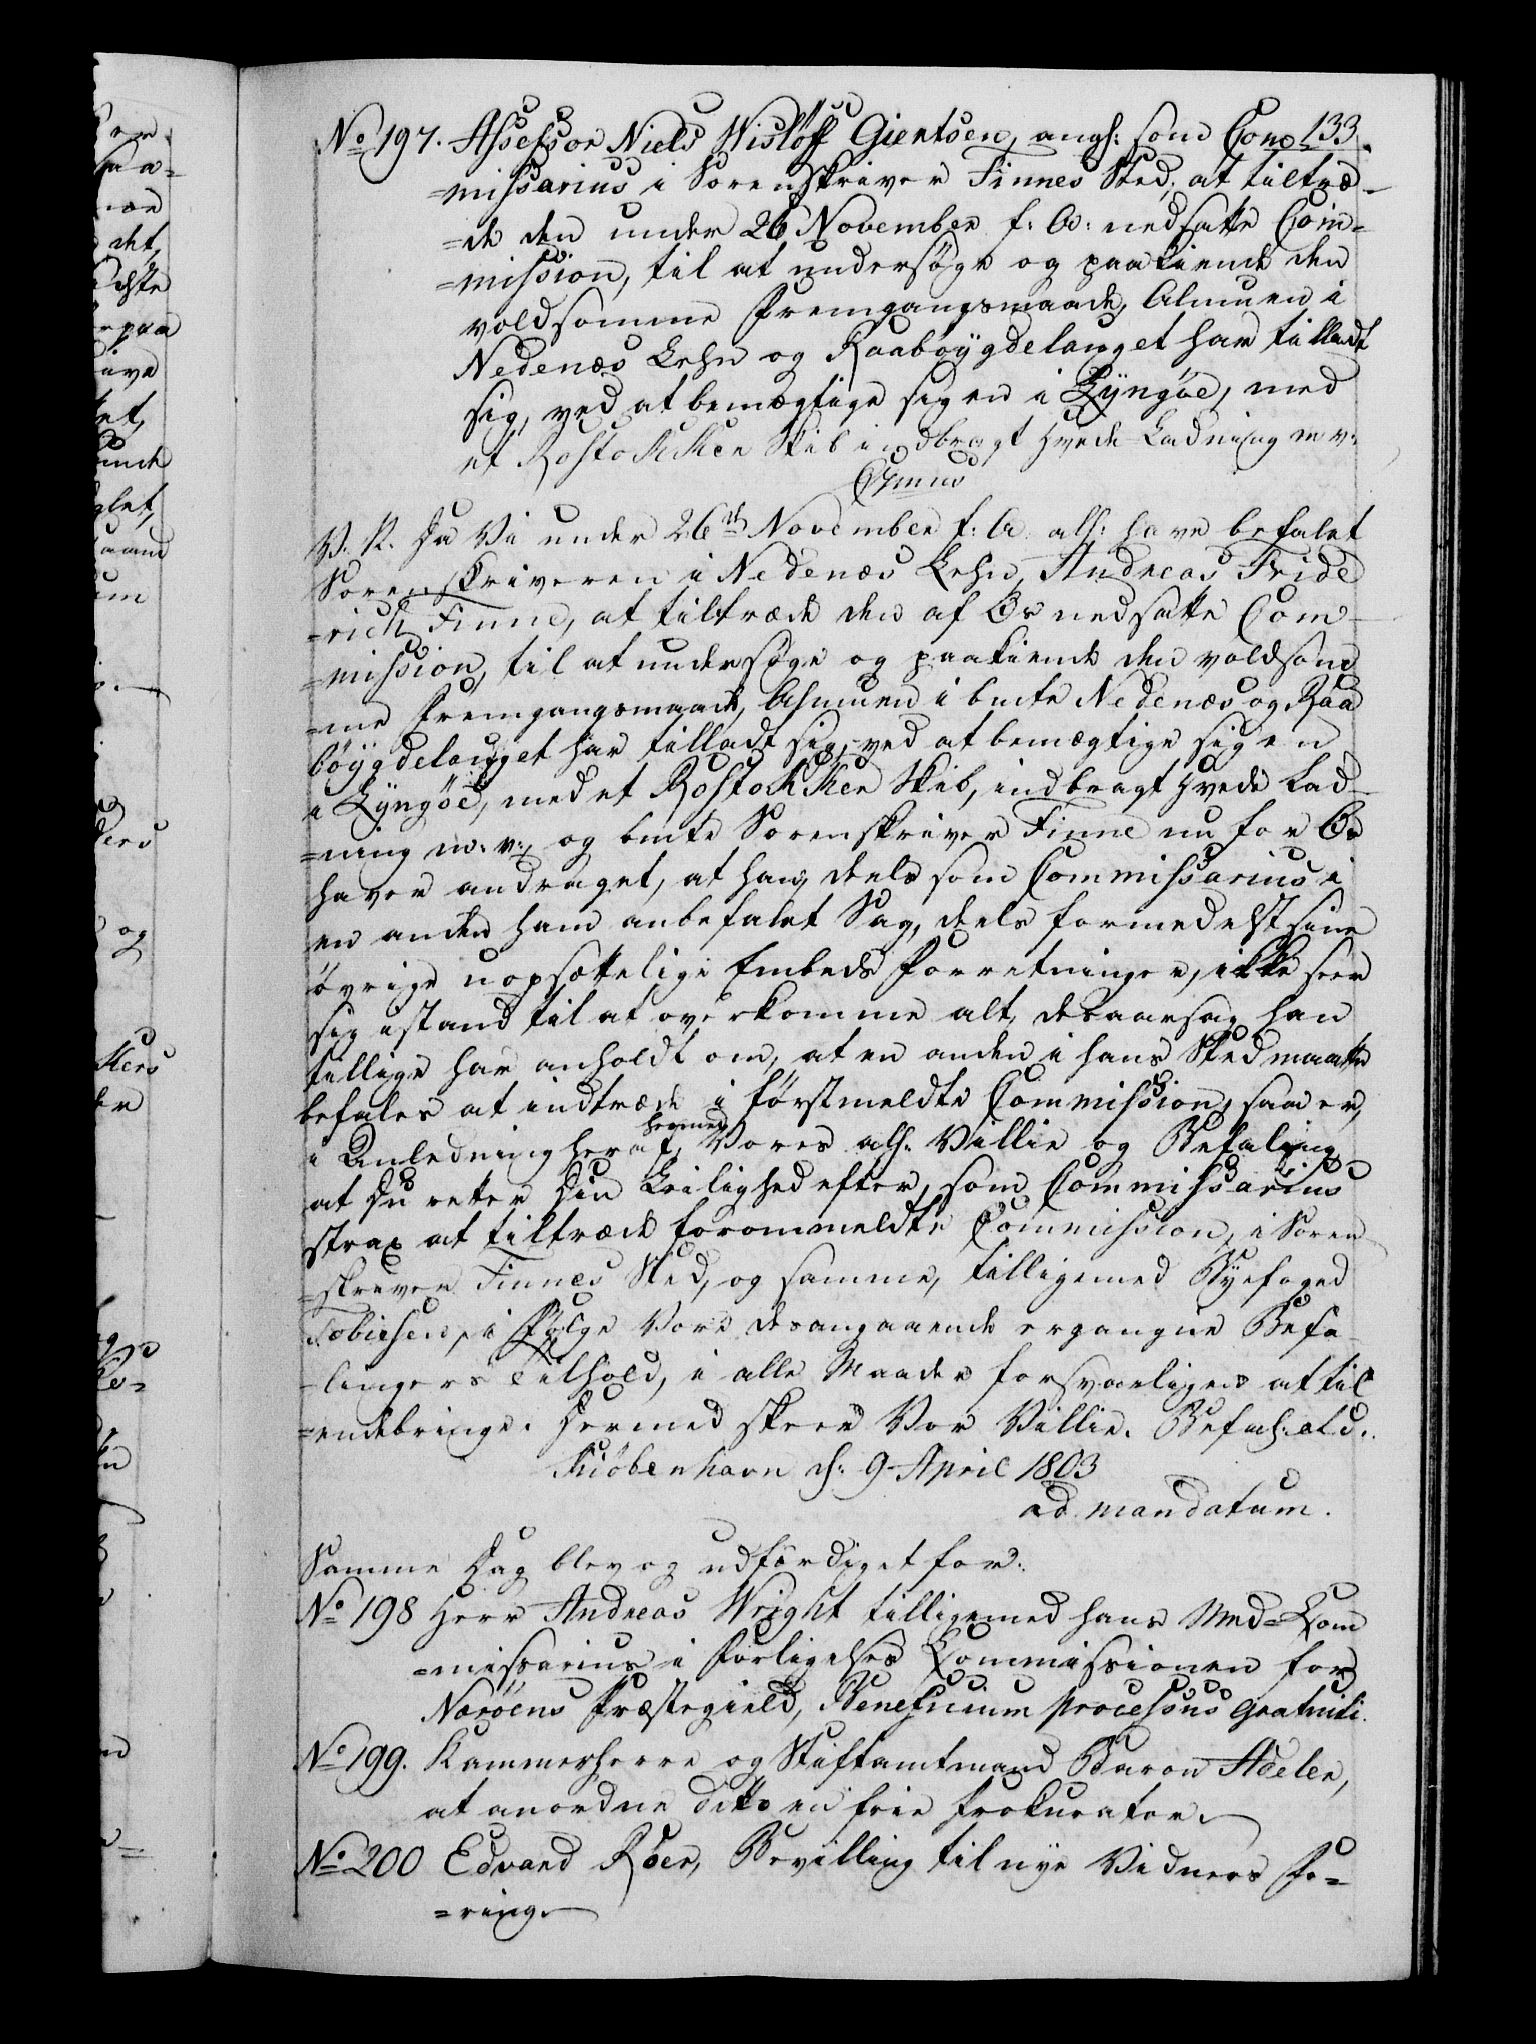 133.
No 197. Assessor Niels Wisløff Gientsen, angl: som Com¬
=missarius i Sorenskriver Finnes Sted, at tiltræ¬
=de den under 26 November f: A: nedsatte Com=
=mission, til at undersøge og paakiende den
voldsomme Fremgangsmaade, Almuen i
Nedenæs Lehn og Raabøÿgdelauget har tilladt
sig, ved at bemægtige sig en i Lÿngöe, med
et Rostokker Skib indbragt Hvede-Ladning m. v:
V. P. Da Vi under 26de November f: A. all: have befalet
Sorenskriveren i Nedenæs Lehn, Andreas Fride
=rich Finne, at tiltræde den af Os nedsatte Com¬
=mission, til at undersøge og paakiende den voldsom
=me Fremgangsmaade, Almuen i bmte Nedenæs og Raa
bøÿgdelauget har tilladt sig, ved at bemægtige sig en
i Lÿngöe, med et Rostokker Skib, indbragt Hvede Lad¬
=ning m: v:, og bmte Sorenskriver Finne nu for Os
haver andraget, at han, deels som Commissarius i
en anden ham anbefalet Sag, deels formedelst sine
øvrige uopsættelige Embeds Forretninger, ikke seer
sig istand til at overkomme alt, desaarsag han
tillige har anholdt om, at en anden i hans Sted maatte
befales at indtræde i førstmeldte Commission, saa er,
i Anledning heraf, hermed Vores all: Villie og Befaling
at Du retter Din Leilighed efter, som Commissarius
strax at tiltræde forommeldte Commission, i Soren
=skriver Finnes Sted, og samme, tilligemed Bÿefoged
Tobiesen, i Følge Vore desangaaende ergangne Befa¬
=lingers Tilhold, i alle Maader forsvarligen at til
=endebringe. Hermed skeer Vor Villie. Befal: etc.
Kiöbenhavn d: 9 April 1803
ad mandatum.
Samme Dag blev og udfærdiget for:
No 198 Herr Andreas Wright tilligemed hans Med=Kom
=missarius i Forligelses Kommissionen for
Nærøens Præstegield, Beneficium processus gratuiti.
No 199. Kammerherre og Stiftamtmand Baron Adeler,
at anordne ditto en frie Prokurator.
No 200 Edvard Röer, Bevilling til nye Vidners Fø=
=ring.